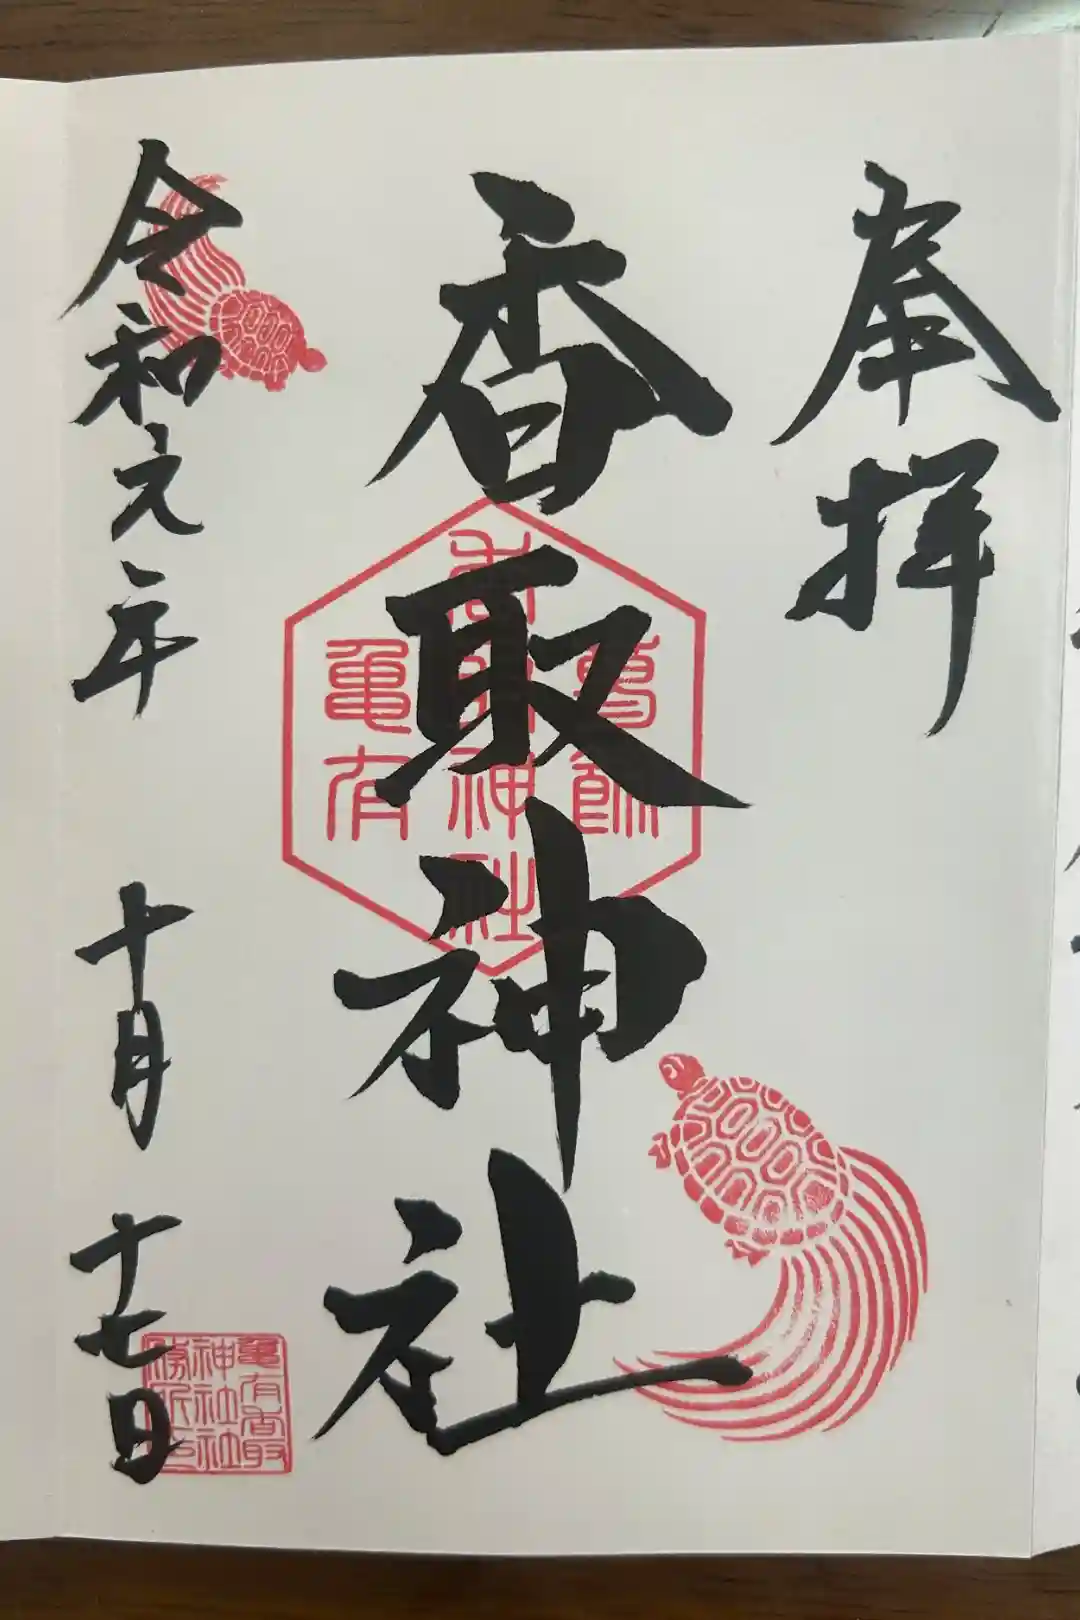 奉拝
香取神社
葛飾
香取神社
亀有
令和元年 十月 十七日
亀有香取
神社社
務所印